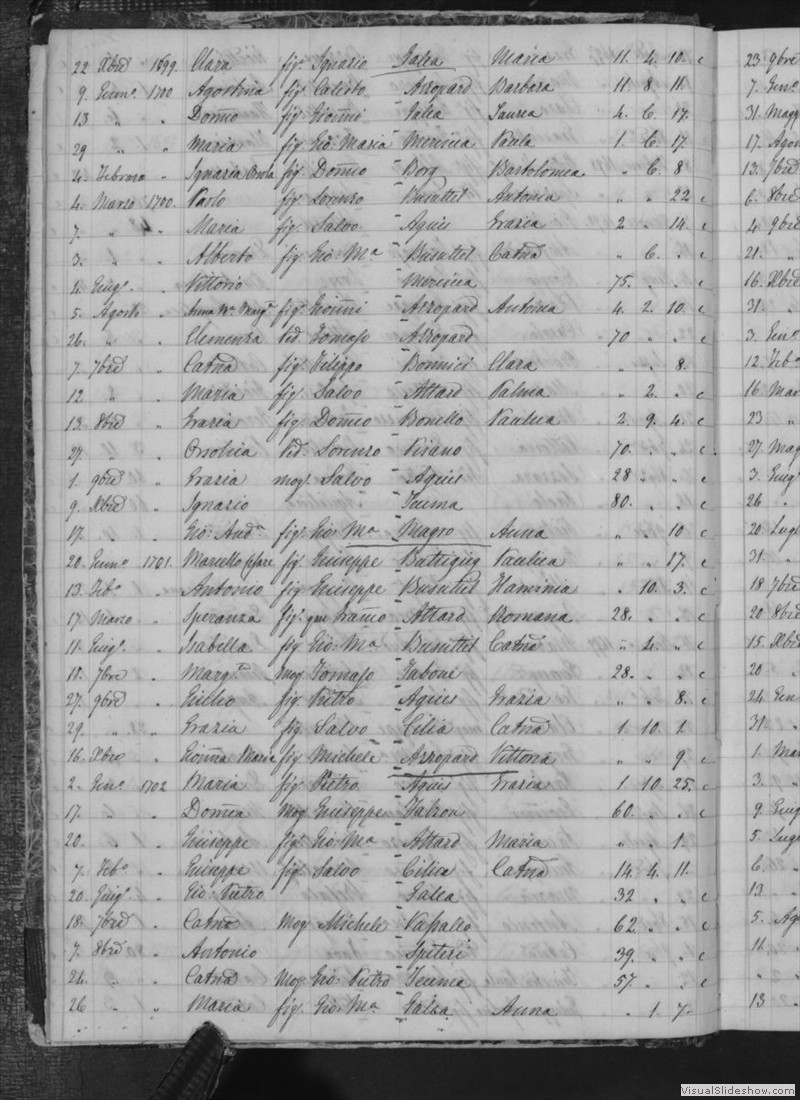 22 Xbre 1699. Clara fig. Ignazio Galea Maria 11. 4. 10. c
9. Genn.o 1700 Agostina fig. Calisto Azzopard Barbera 11. 8. 11.
13 " " Dom.co fig. Giovanni Galea Laurea 4. 6. 17.
29 " " Maria fig. Gio: Maria Mercieca Paula 1. 6. 17
4. Febraro " Ignazia fig. Dom.co Borg Bartolomea " 6. 8
4. Marzo 1700. Paolo fig. Lorenzo Busuttil Antonia " " 22 c
7. " " Maria fig. Salvo Agius Grazia 2 " 14. c
3. " " Alberto fig. Gio: M.a Busuttil Cat.na " 6. " c
4. Giug.o " Vittorio Mercieca 75. " " c
5. Agosto " Anna M.a Marg.a fig. Giovanni Azzopard Antonia 4. 2. 10. c
26. " " Clemenza Ved. Tomaso Azzopard 70 " " c
7. 7bre " Cat.na fig. Filippo Bonnici Clara " " 8.
12 " " Maria fig. Salvo Attard Palma " 2. " c
13. 8bre " Grazia fig. Dom.co Bonello Paulica 2. 9. 4. c
27. " " Orsolica Ved. Lorenzo Pisano 70. " " c
1. 9bre " Grazia mog. Salvo Agius 28 " " c
9. Xbre " Ignazio Teuma 80. " " c
17. " " Gio: And.a fig. Gio: M.a Magro Anna " " 10 c
20. Genn.o 1701. Marcello fig. Giuseppe Buttigieg Paulica " " 17. c
13. Feb.o " Antonio fig. Giuseppe Busuttil Flaminia " 10. 3. c
17 Marzo " Speranza fig. qm Attard Romana 28. " " c
11. Giug.o " Isabella fig. Gio: M.a Busuttil Cat.na " 4. " c
18. 7bre " Marg.ta mog. Tomaso Tabone 28. " " c
27. 9bre " Giulio fig. Pietro Agius Grazia " " 8. c
29. " " Grazia fig. Salvo Cilia Cat.na 1. 10. 1.
16. Xbre " Giovanna Maria fig. Michele Azzopard Vittoria " " 9. c
2. Gen.o 1702 Maria fig. Pietro Agius Grazia 1 10 25. c
17. " " Dom.ca Mog. Giuseppe Falzon 60. " " c
20. " " Giuseppe fig. Gio: M.a Attard Maria " " 1.
7. Feb.o " Giuseppe fig. Salvo Cilia Cat.na 14. 4. 11.
20. Giug.o " Gio: Pietro Galea 32 " " c
18. 7bre " Cat.na Mog. Michele Vassallo 62. " " c
7. 8bre " Antonio Spiteri 39. " " c
24. " " Cat.na Mog. Gio: Pietro Teuma 57. " " c
26 " " Maria fig. Gio: M.a Galea Anna " 1. 7.
23 9bre
7. Gen.o
31. Magg
17. Agos
13. 7bre
6. 8bre
4. 9bre
21. "
16. Xbre
31. "
3. Gen
12. Feb.o
16 Mar
23 "
27. Mag
3. Giug
26 "
20. Lugl
31. "
18 7bre
20 8bre
15. Xbre
20 "
24 Gen
31. "
1. Mar
3. "
9. Giug
5. Lug
6. "
13 "
5. Ag
11. "
" "
13 "
VisualSlideshow.com